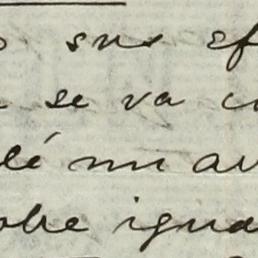 sus ef
se va
lé mi au
obre igua